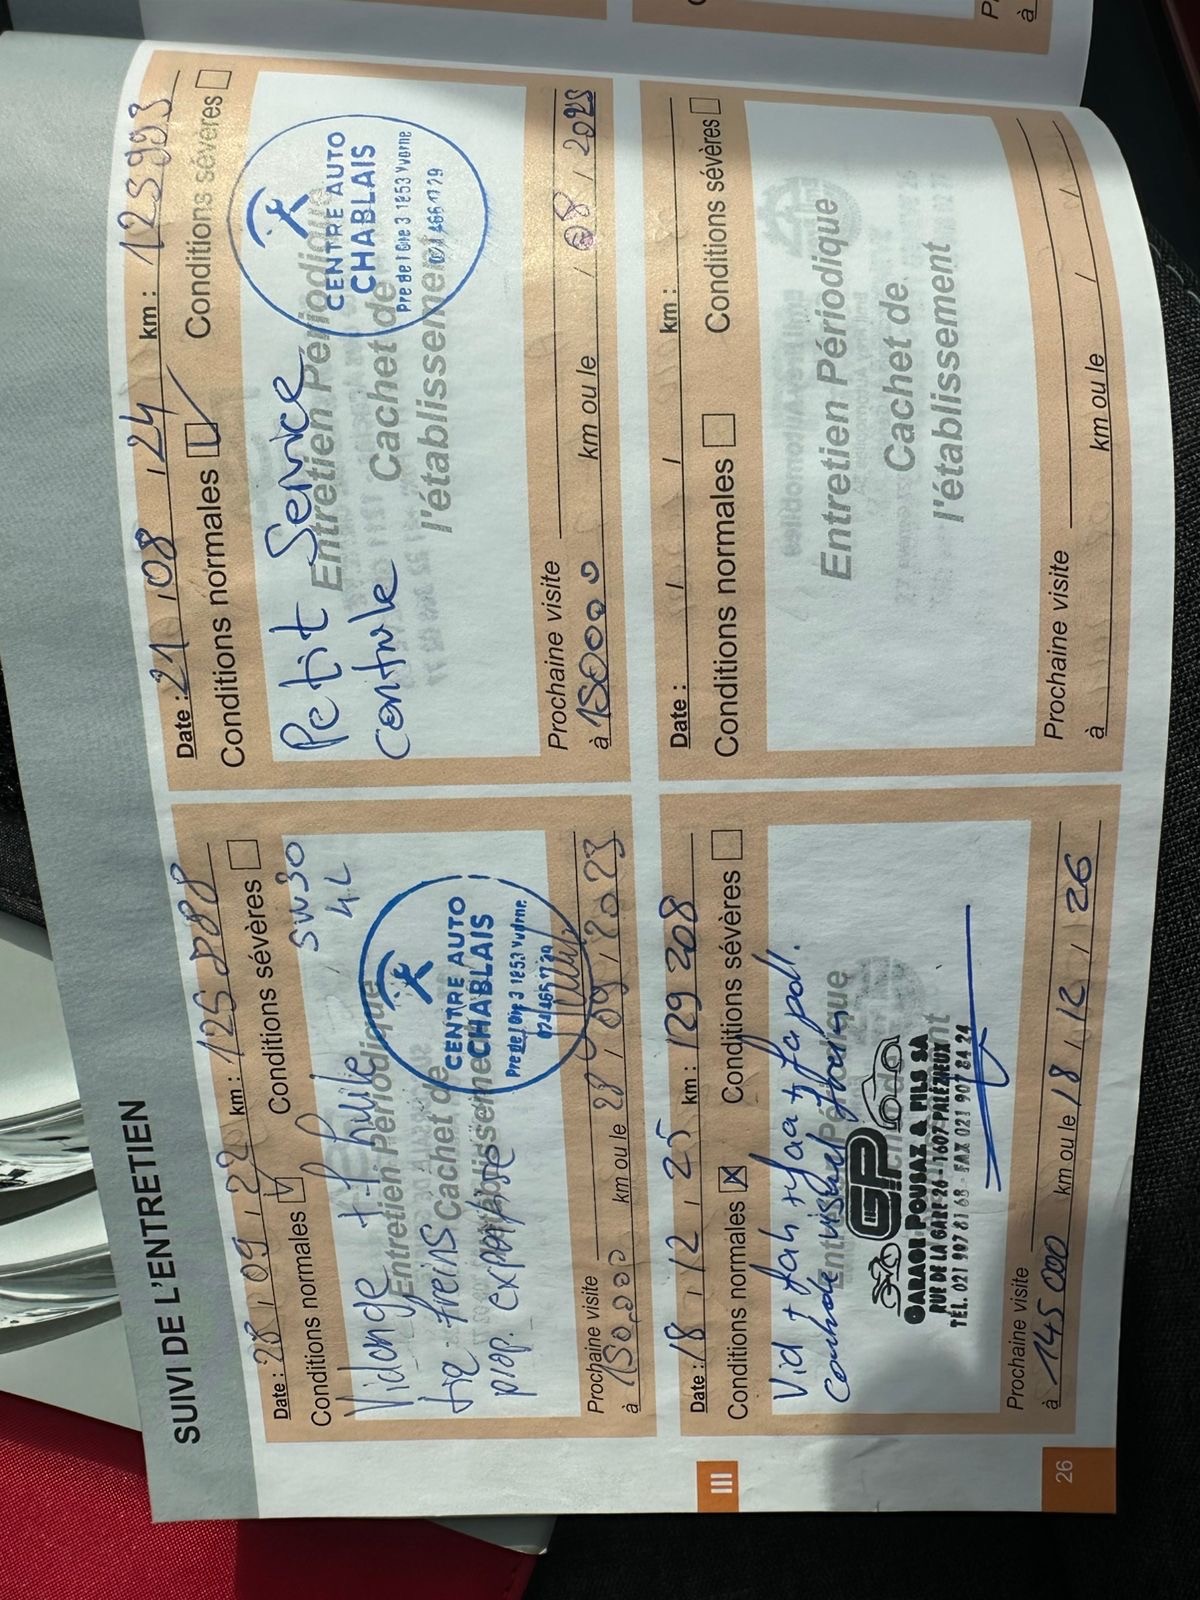 SUIVI DE L'ENTRETIEN
Date : 28 , 09 , 22 km :
Conditions normales Conditions sévères
5W30
4L
Vidange + f. huile
Entretien Périodique
liq. freins
Cachet de
l'établissement
prep. expertise
CENTRE AUTO
CHABLAIS
Pre de l'Oie 3 1853 Yvorne
Prochaine visite
à 150.000 km ou le 28 , 09 , 2023
Date : 21 , 08 , 24 km :
Conditions normales Conditions sévères
Petit Service
Entretien Périodique
Controle
Cachet de
l'établissement
CENTRE AUTO
CHABLAIS
Pre de l'Oie 3 1853 Yvorne
Prochaine visite
à 15000 km ou le , 08 , 2025
Date : 18 , 12 , 25 km : 129 208
Conditions normales X Conditions sévères
Vid + fah + faa + fapoll.
Entretien Périodique
GP
GARAGE POUSAZ & FILS SA
RUE DE LA GARE 26 - 1607 PALÉZIEUX
TÉL. 021 907 81 68 - FAX 021 907 84 24
Prochaine visite
à 145 000 km ou le 18 , 12 , 26
Date : km :
Conditions normales Conditions sévères
Entretien Périodique
Cachet de
l'établissement
Prochaine visite
à km ou le
III
26